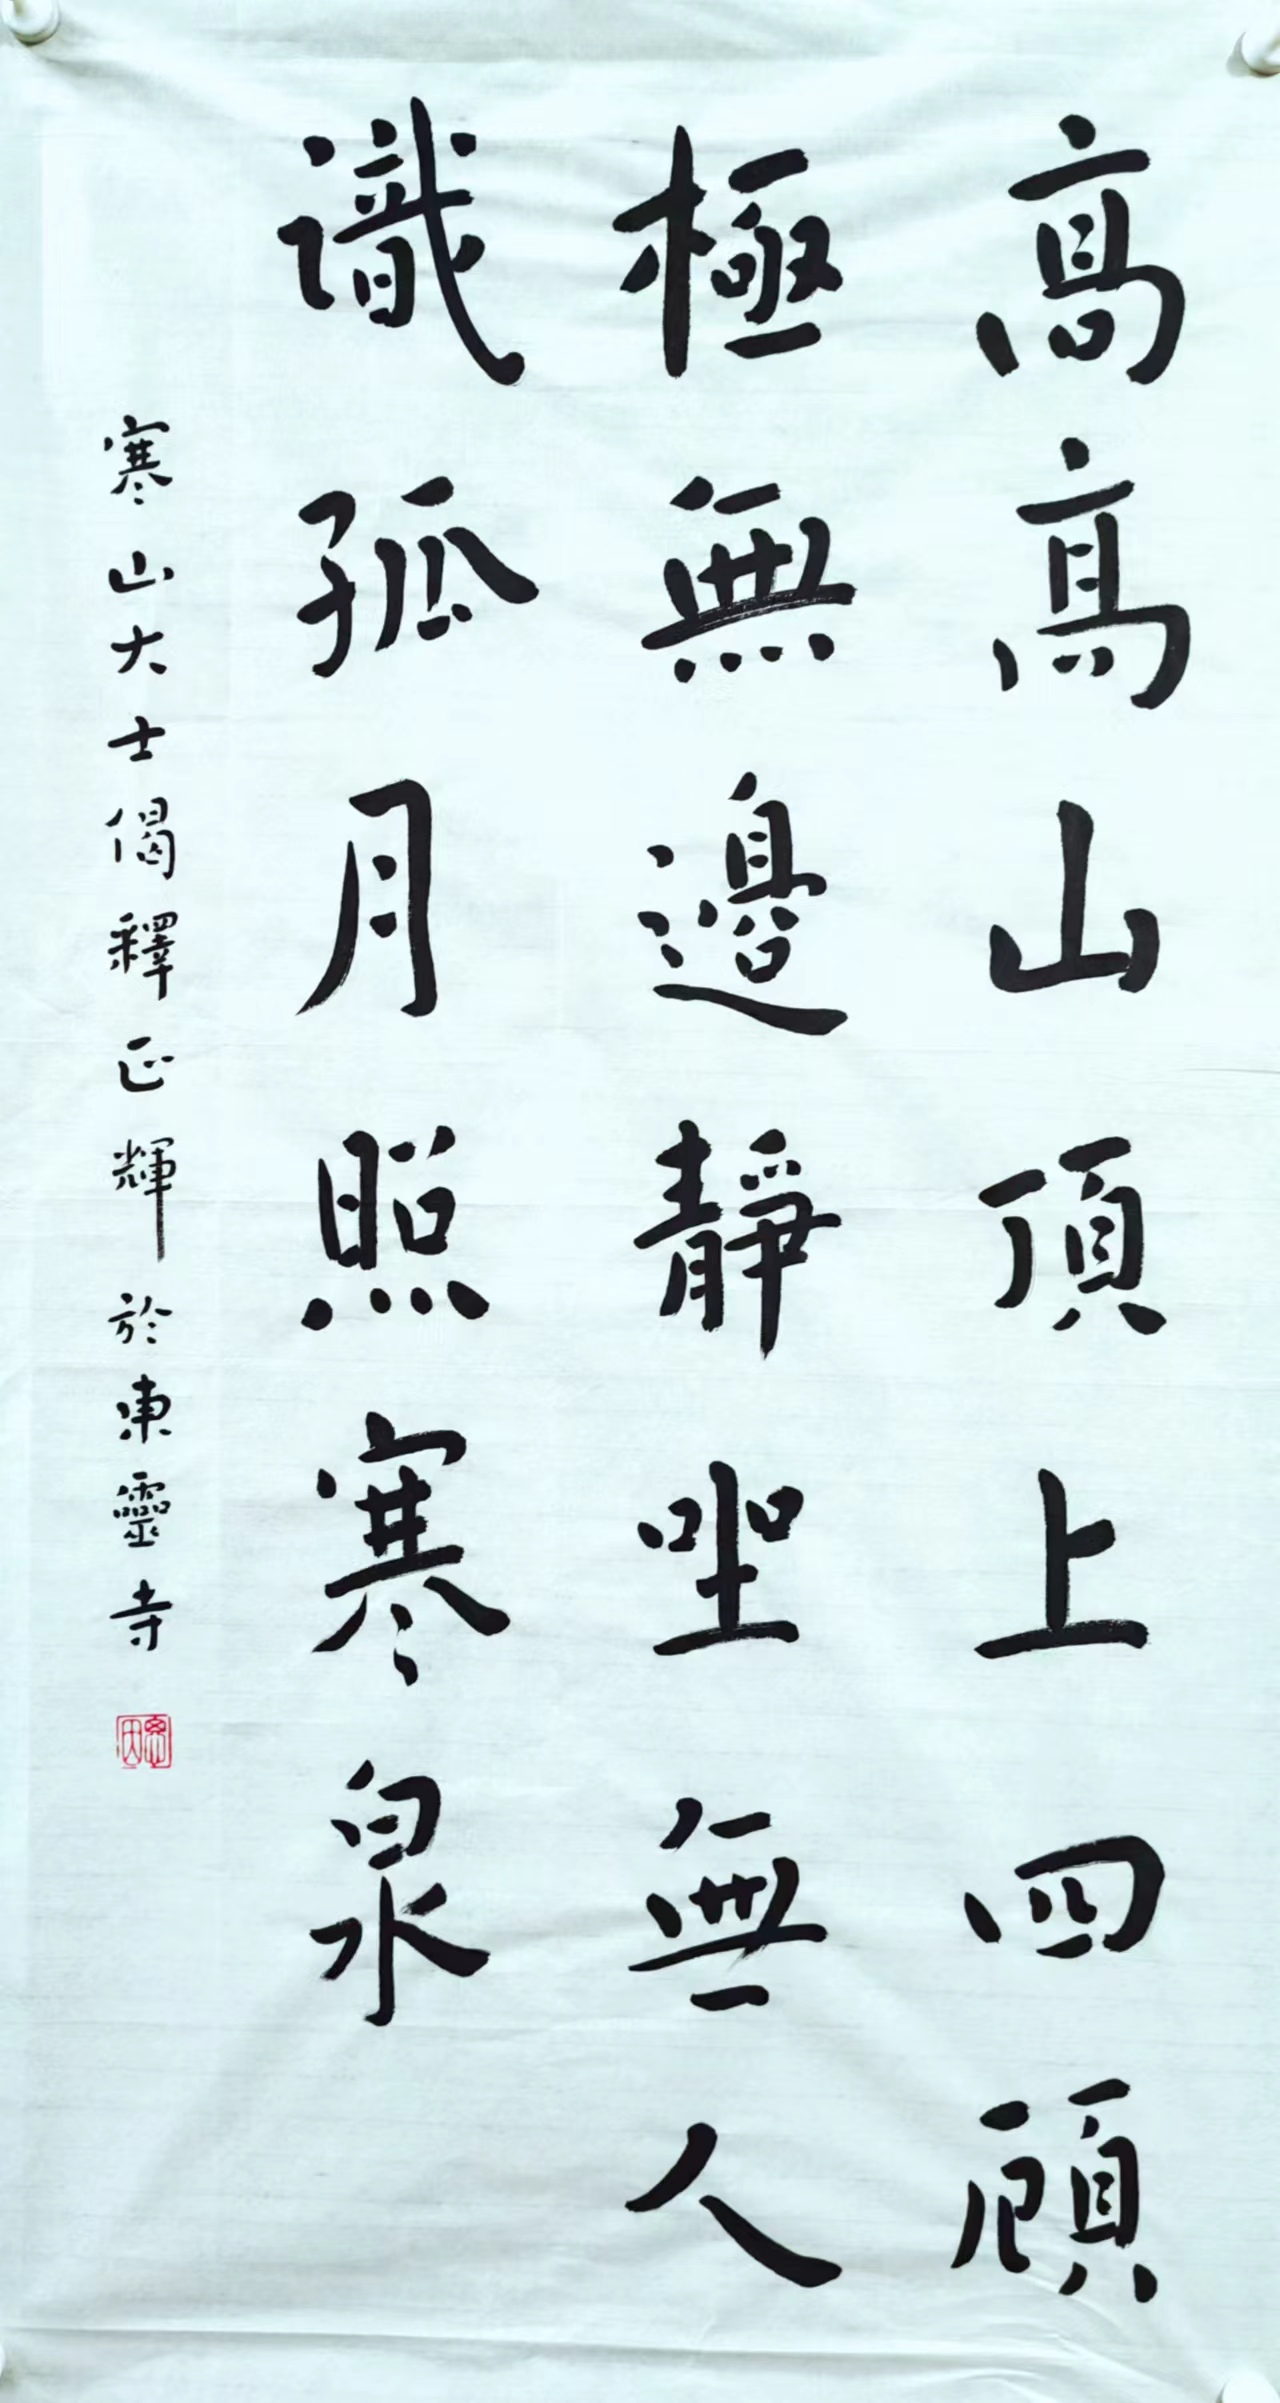 高高山頂上四顧
極無邊靜坐無人
識孤月照寒泉
寒山大士偈釋正輝於東靈寺